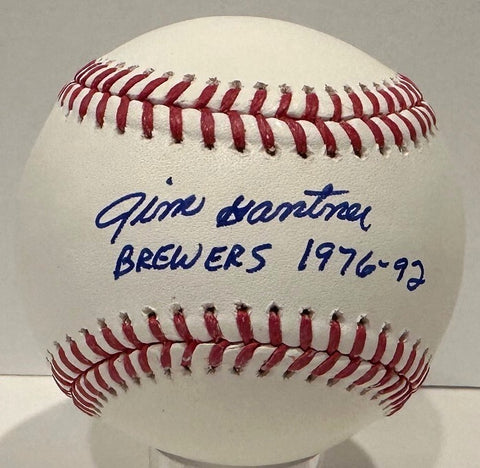 Jim Gantner
BREWERS 1976-92